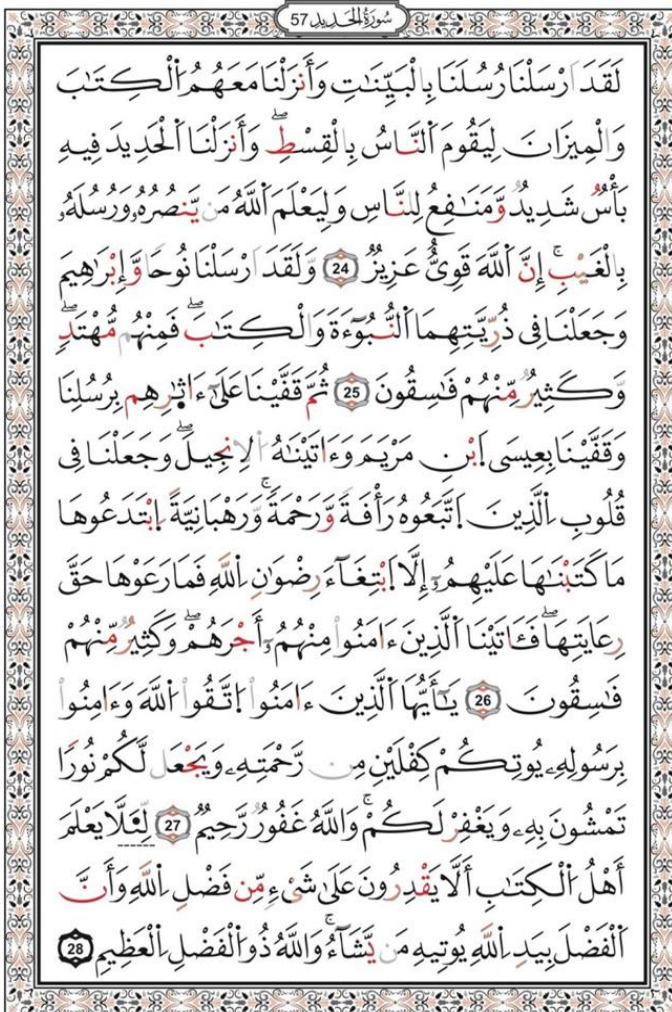 سُورَةُ الْحَدِيدِ 57
لَقَدَ ارْسَلْنَا رُسُلَنَا بِالْبَيِّنَٰتِ وَأَنزَلْنَا مَعَهُمُ اُلْكِتَٰبَ
وَالْمِيزَانَ لِيَقُومَ اَلنَّاسُ بِالْقِسْطِۖ وَأَنزَلْنَا اَلْحَدِيدَ فِيهِ
بَأْسٌ شَدِيدٌ وَمَنَٰفِعُ لِلنَّاسِ وَلِيَعْلَمَ اَللَّهُ مَن يَّنصُرُهُۥ وَرُسُلَهُۥ
بِالْغَيْبِۚ إِنَّ اَللَّهَ قَوِيٌّ عَزِيزٌ 24 وَلَقَدَ ارْسَلْنَا نُوحًا وَإِبْرَٰهِيمَ
وَجَعَلْنَا فِى ذُرِّيَّتِهِمَا اَلنُّبُوٓءَةَ وَالْكِتَٰبَۖ فَمِنْهُم مُّهْتَدٍۖ
وَكَثِيرٌ مِّنْهُمْ فَٰسِقُونَ 25 ثُمَّ قَفَّيْنَا عَلَىٰٓ ءَاثٰ۪رِهِم بِرُسُلِنَا
وَقَفَّيْنَا بِعِيسَى اَبْنِ مَرْيَمَ وَءَاتَيْنَٰهُ اُلِانجِيلَۖ وَجَعَلْنَا فِى
قُلُوبِ اِلذِينَ اَتَّبَعُوهُ رَأْفَةً وَرَحْمَةًۚ وَرَهْبَانِيَّةً اِبْتَدَعُوهَا
مَا كَتَبْنَٰهَا عَلَيْهِمُۥٓ إِلَّا اَبْتِغَآءَ رِضْوَٰنِ اِللَّهِ فَمَا رَعَوْهَا حَقَّ
رِعَايَتِهَاۖ فَـَٔاتَيْنَا اَلذِينَ ءَامَنُواْ مِنْهُمُۥٓ أَجْرَهُمْۖ وَكَثِيرٌ مِّنْهُمْ
فَٰسِقُونَ 26 يَٰٓأَيُّهَا اَلذِينَ ءَامَنُواْ اُتَّقُواْ اُللَّهَ وَءَامِنُواْ
بِرَسُولِهِۦ يُوتِكُمْ كِفْلَيْنِ مِن رَّحْمَتِهِۦ وَيَجْعَل لَّكُمْ نُورًا
تَمْشُونَ بِهِۦ وَيَغْفِرْ لَكُمْۚ وَاللَّهُ غَفُورٌ رَّحِيمٌ 27 لِّيَلَّا يَعْلَمَ
أَهْلُ اُلْكِتَٰبِ أَلَّا يَقْدِرُونَ عَلَىٰ شَىْءٍ مِّن فَضْلِ اِللَّهِ وَأَنَّ
اَلْفَضْلَ بِيَدِ اِللَّهِ يُوتِيهِ مَن يَّشَآءُۚ وَاللَّهُ ذُو اُلْفَضْلِ اِلْعَظِيمِ 28